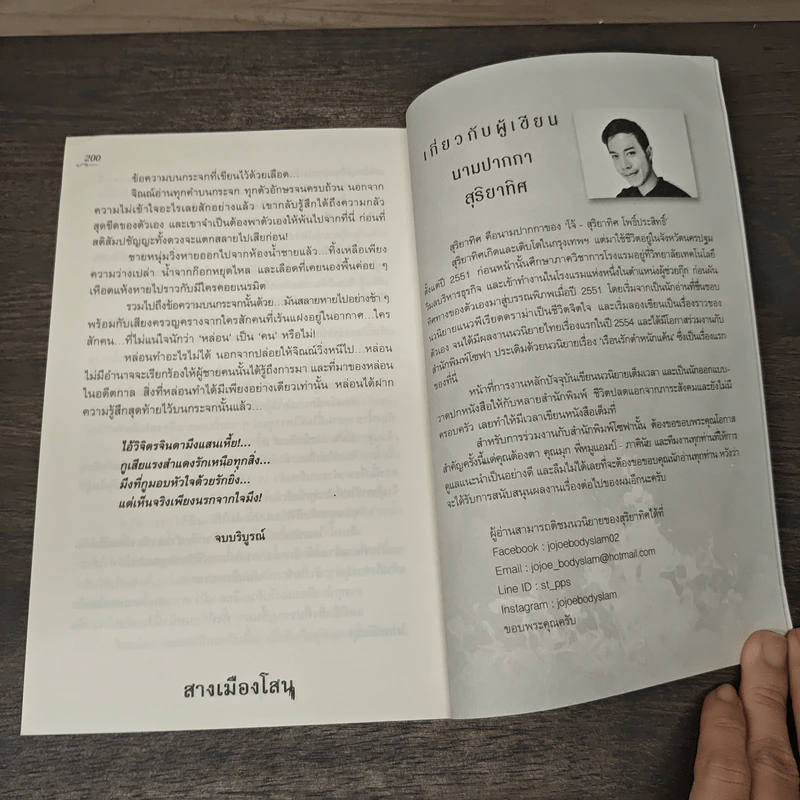 200
ข้อความบนกระจกที่เขียนไว้ด้วยเลือด...
จิณณ์อ่านทุกคำบนกระจก ทุกตัวอักษรจนครบถ้วน นอกจาก
ความไม่เข้าใจอะไรเลยสักอย่างแล้ว เขากลับรู้สึกได้ถึงความกลัว
สุดขีดของตัวเอง และเขาจำเป็นต้องพาตัวเองให้พ้นไปจากที่นี่ ก่อนที่
สติสัมปชัญญะทั้งดวงจะแตกสลายไปเสียก่อน!
ชายหนุ่มวิ่งหายออกไปจากห้องน้ำชายแล้ว...ทิ้งเหลือเพียง
ความว่างเปล่า น้ำจากก๊อกหยุดไหล และเลือดที่เคยนองพื้นค่อย ๆ
เหือดแห้งหายไปราวกับมีใครคอยเนรมิต
รวมไปถึงข้อความบนกระจกนั้นด้วย...มันสลายหายไปอย่างช้า ๆ
พร้อมกับเสียงครวญครางจากใครสักคนที่เร้นแฝงอยู่ในอากาศ...ใคร
สักคน...ที่ไม่แน่ใจนักว่า 'หล่อน' เป็น 'คน' หรือไม่!
หล่อนทำอะไรไม่ได้ นอกจากปล่อยให้จิณณ์วิ่งหนีไป...หล่อน
ไม่มีอำนาจจะเรียกร้องให้ผู้ชายคนนั้นได้รู้ถึงการมา และที่มาของหล่อน
ในอดีตกาล สิ่งที่หล่อนทำได้มีเพียงอย่างเดียวเท่านั้น หล่อนได้ฝาก
ความรู้สึกสุดท้ายไว้บนกระจกนั้นแล้ว...
ไอ้วิจิตรจินดามึงแสนเหี้ย!...
กูเสียแรงสำแดงรักเหนือทุกสิ่ง...
มึงที่กูมอบหัวใจด้วยรักยิ่ง...
แต่เห็นจริงเพียงนรกจากใจมึง!
จบบริบูรณ์
สางเมืองโสน
เกี่ยวกับผู้เขียน
นามปากกา
สุริยาทิศ
สุริยาทิศ คือนามปากกาของ 'โจ้ - สุริยาทิศ โพธิ์ประสิทธิ์'
สุริยาทิศเกิดและเติบโตในกรุงเทพฯ แต่มาใช้ชีวิตอยู่ในจังหวัดนครปฐม
ตั้งแต่ปี 2551 ก่อนหน้านั้นศึกษาภาควิชาการโรงแรมอยู่ที่วิทยาลัยเทคโนโลยี
บริหารธุรกิจ และเข้าทำงานในโรงแรมแห่งหนึ่งในตำแหน่งผู้ช่วยกุ๊ก ก่อนผัน
ทิศทางของตัวเองมาสู่บรรณพิภพเมื่อปี 2551 โดยเริ่มจากเป็นนักอ่านที่ชื่นชอบ
นวนิยายแนวพีเรียดดราม่าเป็นชีวิตจิตใจ และเริ่มลองเขียนเป็นเรื่องราวของ
ตัวเอง จนได้มีผลงานนวนิยายไทยเรื่องแรกในปี 2554 และได้มีโอกาสร่วมงานกับ
สำนักพิมพ์โซฟา ประเดิมด้วยนวนิยายเรื่อง 'เรือนรักตำหนักแค้น' ซึ่งเป็นเรื่องแรก
ของที่นี่
หน้าที่การงานหลักปัจจุบันเขียนนวนิยายเต็มเวลา และเป็นนักออกแบบ-
วาดปกหนังสือให้กับหลายสำนักพิมพ์ ชีวิตปลดแอกจากภาระสังคมและยังไม่มี
ครอบครัว เลยทำให้มีเวลาเขียนหนังสือเต็มที่
สำหรับการร่วมงานกับสำนักพิมพ์โซฟานั้น ต้องขอขอบพระคุณโอกาส
สำคัญครั้งนี้แด่คุณต้องตา คุณมุก พี่หมูแอมป์ - ภาคินัย และทีมงานทุกท่านที่ให้การ
ดูแลแนะนำเป็นอย่างดี และลืมไม่ได้เลยที่จะต้องขอขอบคุณนักอ่านทุกท่าน หวังว่า
จะได้รับการสนับสนุนผลงานเรื่องต่อไปของผมอีกนะครับ
ผู้อ่านสามารถติชมนวนิยายของสุริยาทิศได้ที่
Facebook : jojoebodyslam02
Email : jojoe_bodyslam@hotmail.com
Line ID : st_pps
Instagram : jojoebodyslam
ขอบพระคุณครับ